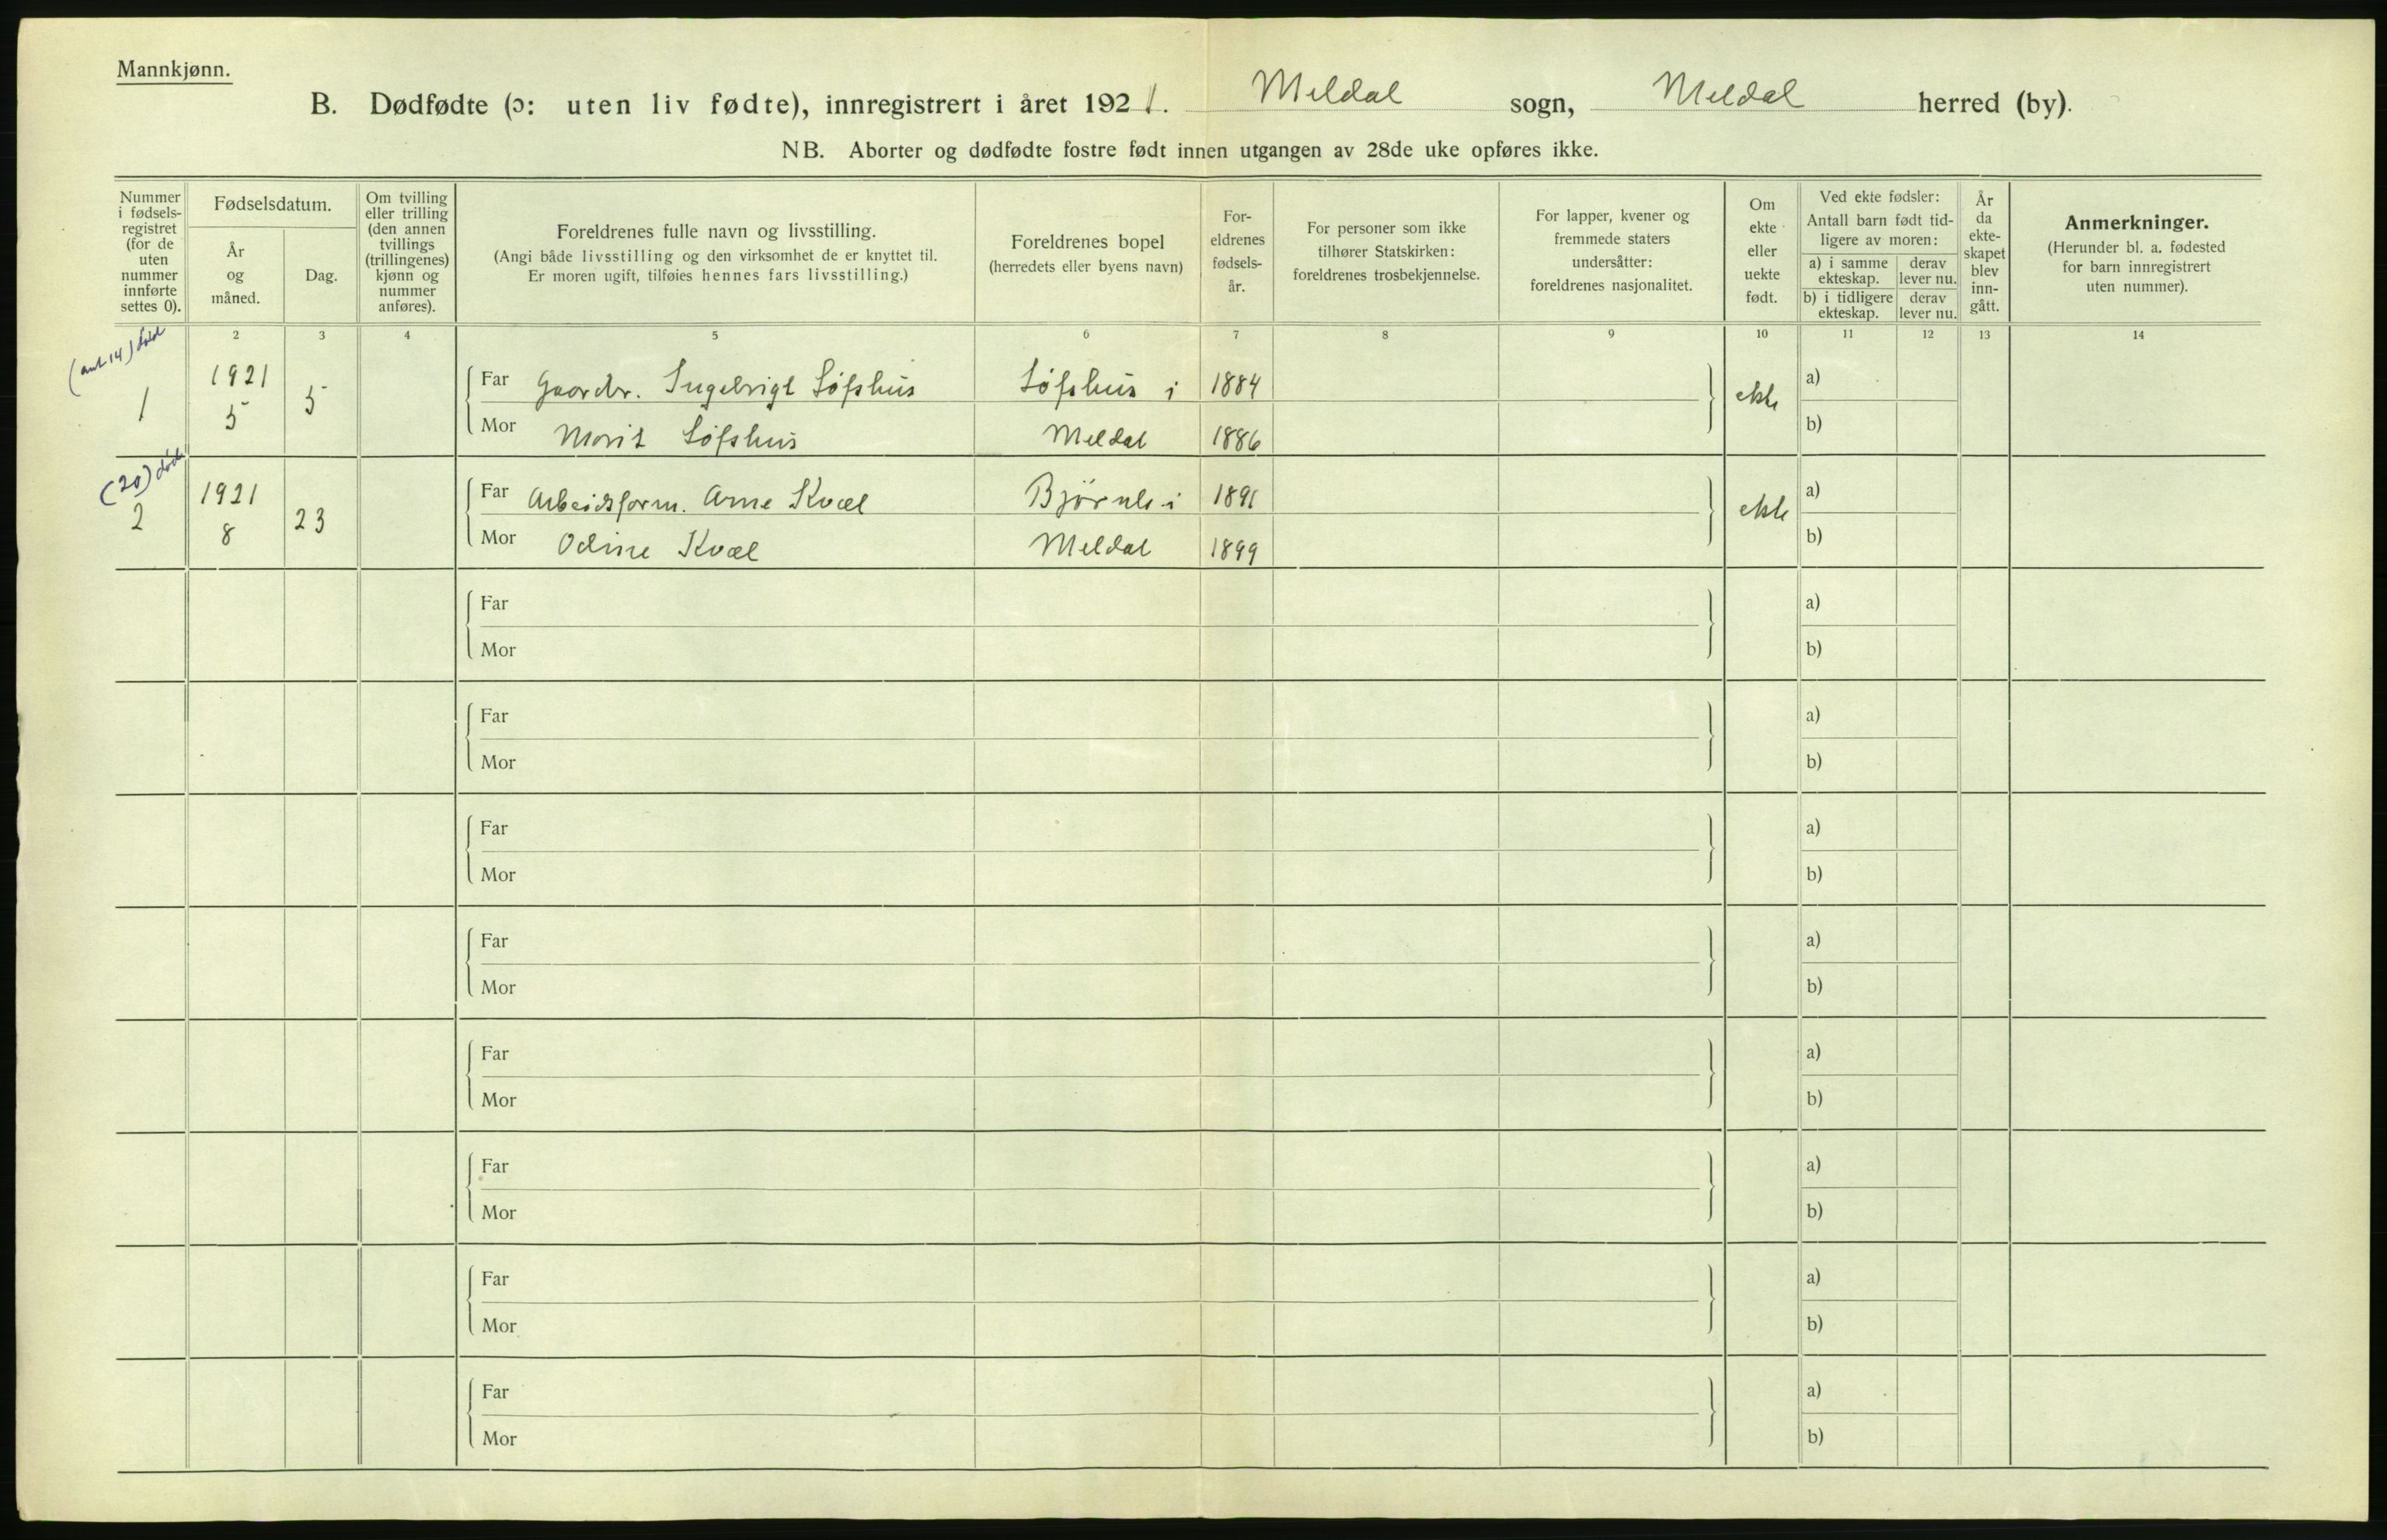 Mannkjønn.
B. Dødfødte (ɔ: uten liv fødte), innregistrert i året 1921. Meldal sogn, Meldal herred (by).
NB. Aborter og dødfødte fostre født innen utgangen av 28de uke opføres ikke.
Nummer
i fødsels-
registret
(for de
uten
nummer
innførte
settes 0).
Fødselsdatum.
År
og
måned.
Dag.
Om tvilling
eller trilling
(den annen
tvillings
(trillingenes)
kjønn og
nummer
anføres).
Foreldrenes fulle navn og livsstilling.
(Angi både livsstilling og den virksomhet de er knyttet til.
Er moren ugift, tilføies hennes fars livsstilling.)
Foreldrenes bopel
(herredets eller byens navn)
For-
eldrenes
fødsels-
år.
For personer som ikke
tilhører Statskirken:
foreldrenes trosbekjennelse.
For lapper, kvener og
fremmede staters
undersåtter:
foreldrenes nasjonalitet.
Om
ekte
eller
uekte
født.
Ved ekte fødsler:
Antall barn født tid-
ligere av moren:
a) i samme
ekteskap.
derav
lever nu.
b) i tidligere
ekteskap.
derav
lever nu.
År
da
ekte-
skapet
blev
inn-
gått.
Anmerkninger.
(Herunder bl. a. fødested
for barn innregistrert
uten nummer).
2 3 4 5 6 7 8 9 10 11 12 13 14
(ant 14) død
1 1921 5 5 Far Gaardbr. Ingebrigt Løfshus Løfshus i 1884 ekte a)
Mor Marit Løfshus Meldal 1886 b)
(20) død
2 1921 8 23 Far Arbeidsform. Arne Kvæl Bjørnli i 1891 ekte a)
Mor Odine Kvæl Meldal 1899 b)
Far a)
Mor b)
Far a)
Mor b)
Far a)
Mor b)
Far a)
Mor b)
Far a)
Mor b)
Far a)
Mor b)
Far a)
Mor b)
Far a)
Mor b)